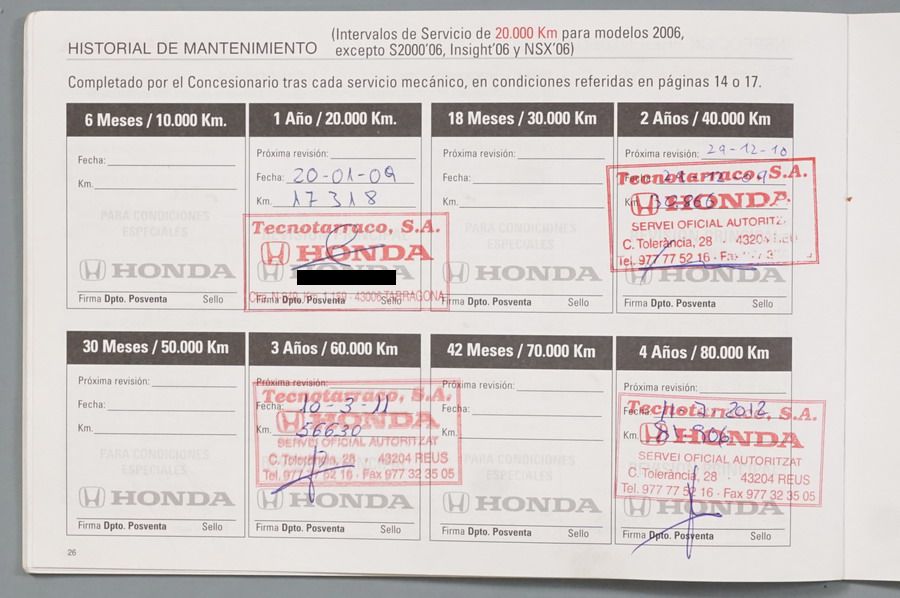 HISTORIAL DE MANTENIMIENTO
(Intervalos de Servicio de 20.000 Km para modelos 2006,
excepto S2000'06, Insight'06 y NSX'06)
Completado por el Concesionario tras cada servicio mecánico, en condiciones referidas en páginas 14 o 17.
6 Meses / 10.000 Km.
Fecha:
Km.
PARA CONDICIONES
ESPECIALES
HONDA
Firma Dpto. Posventa Sello
1 Año / 20.000 Km.
Próxima revisión:
Fecha: 20-01-09
Km. 17318
Tecnotarraco, S.A.
HONDA
HONDA
43006 TARRAGONA
Firma Dpto. Posventa Sello
18 Meses / 30.000 Km
Próxima revisión:
Fecha:
Km.
PARA CONDICIONES
ESPECIALES
HONDA
Firma Dpto. Posventa Sello
2 Años / 40.000 Km
Próxima revisión: 29-12-10
Tecnotarraco, S.A.
Fecha: 29-12-09
Km.
HONDA
SERVEI OFICIAL AUTORITZ
C. Tolerància, 28 - 43204
Tel. 977 77 52 16 - Fax 977 3
HONDA
Firma Dpto. Posventa Sello
30 Meses / 50.000 Km
Próxima revisión:
Fecha:
Km.
PARA CONDICIONES
ESPECIALES
HONDA
Firma Dpto. Posventa Sello
3 Años / 60.000 Km
Próxima revisión:
Tecnotarraco, S.A.
Fecha: 10-3-11
HONDA
Km. 56630
SERVEI OFICIAL AUTORITZAT
C. Tolerància, 28 - 43204 REUS
Tel. 977 77 52 16 - Fax 977 32 35 05
HONDA
Firma Dpto. Posventa Sello
42 Meses / 70.000 Km
Próxima revisión:
Fecha:
Km.
PARA CONDICIONES
ESPECIALES
HONDA
Firma Dpto. Posventa Sello
4 Años / 80.000 Km
Próxima revisión:
Tecnotarraco, S.A.
Fecha: 11-7-2012
Km. 81906
HONDA
SERVEI OFICIAL AUTORITZAT
C. Tolerància, 28 - 43204 REUS
Tel. 977 77 52 16 - Fax 977 32 35 05
HONDA
Firma Dpto. Posventa Sello
26